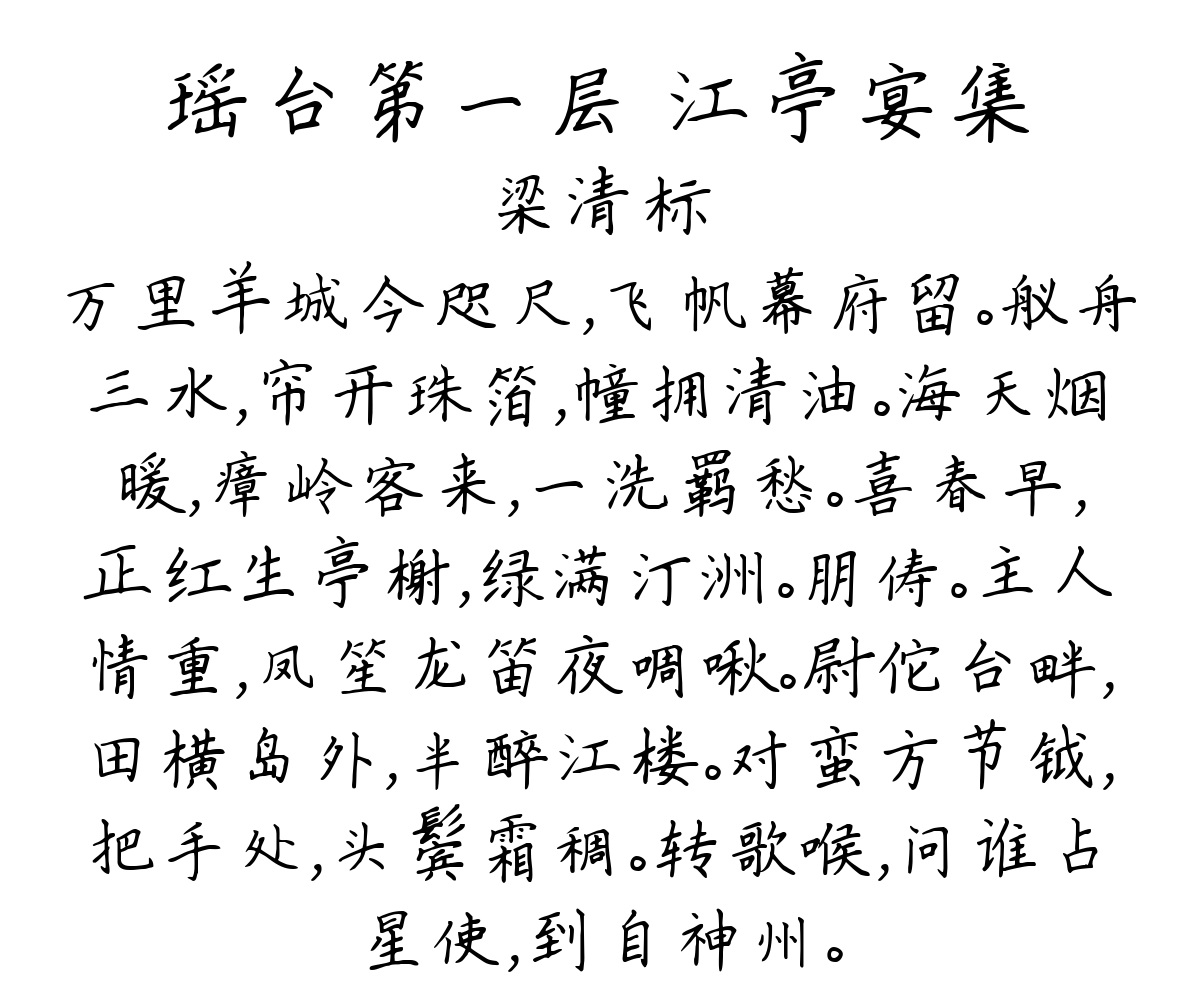 瑶台第一层 江亭宴集
梁清标
万里羊城今咫尺,飞帆幕府留。舣舟
三水,帘开珠箔,幢拥清油。海天烟
暖,瘴岭客来,一洗羁愁。喜春早,
正红生亭榭,绿满汀洲。朋俦。主人
情重,凤笙龙笛夜啁啾。尉佗台畔,
田横岛外,半醉江楼。对蛮方节钺,
把手处,头鬓霜稠。转歌喉,问谁占
星使,到自神州。